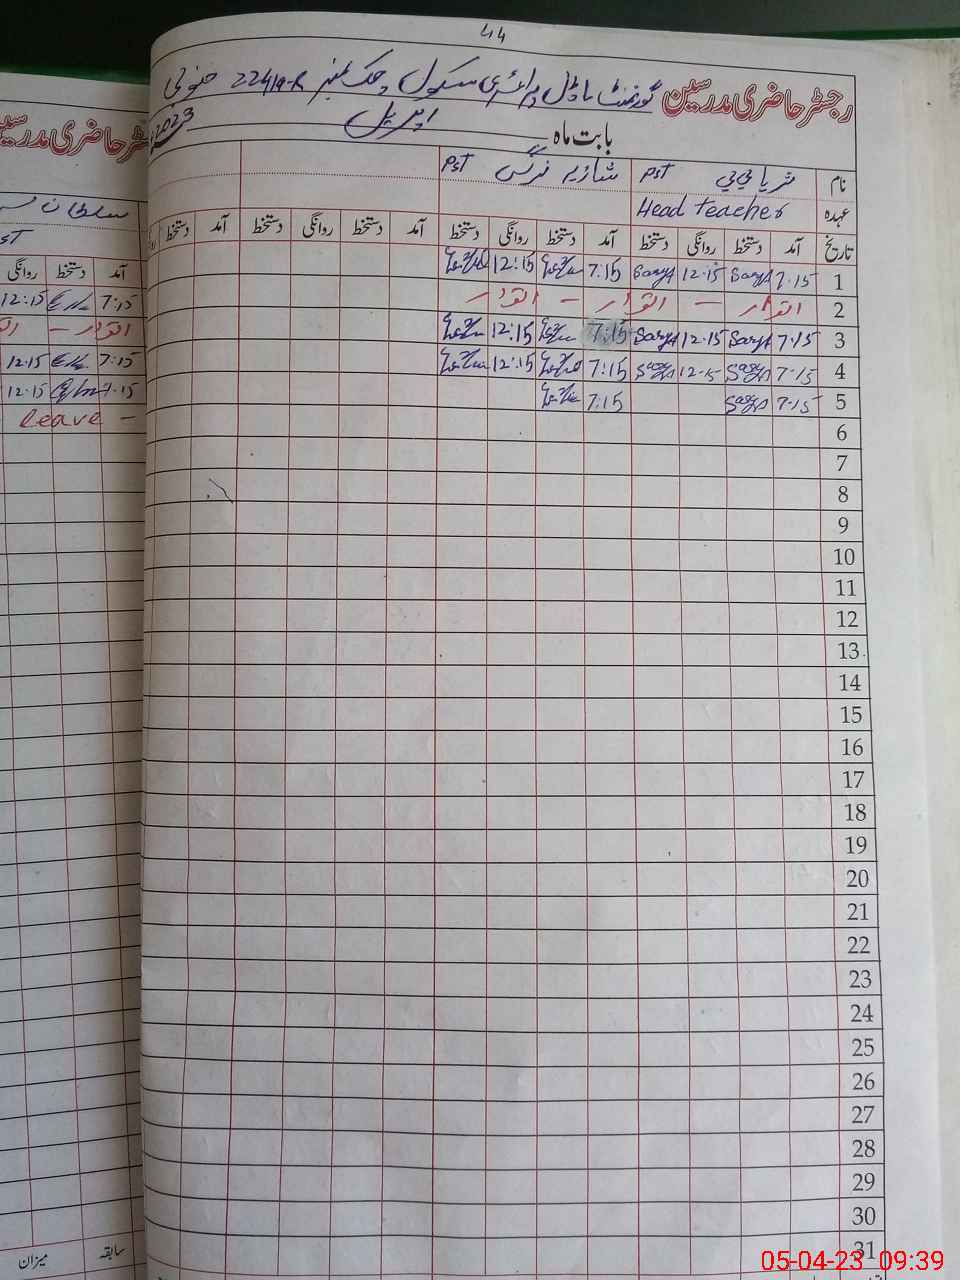 44
رجسٹر حاضری مدرسین گورنمنٹ ماڈل پرائمری سکول چک نمبر 224/9-R جنوبی
بابت ماہ اپریل 2023
نام ثریا بی بی PST شازیہ نرگس PST
عہدہ Head teacher
تاریخ آمد دستخط روانگی دستخط آمد دستخط روانگی دستخط آمد دستخط روانگی دستخط آمد دستخط
1 7.15 12.15 7:15 12:15
2 اتوار - اتوار - اتوار
3 7.15 12.15 7:15 12:15
4 7.15 12.15 7:15 12:15
5 7.15 7:15
6
7
8
9
10
11
12
13
14
15
16
17
18
19
20
21
22
23
24
25
26
27
28
29
30
31
سلطان
آمد دستخط روانگی
7:15 12:15
اتوار -
7:15 12.15
7.15 12.15
leave -
سابقہ میزان
05-04-23 09:39